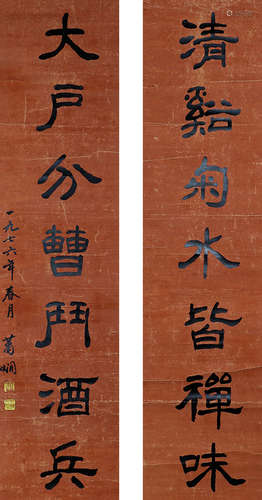 清谿匊水皆禪味
大戶分曹鬥酒兵
一九七六年春月